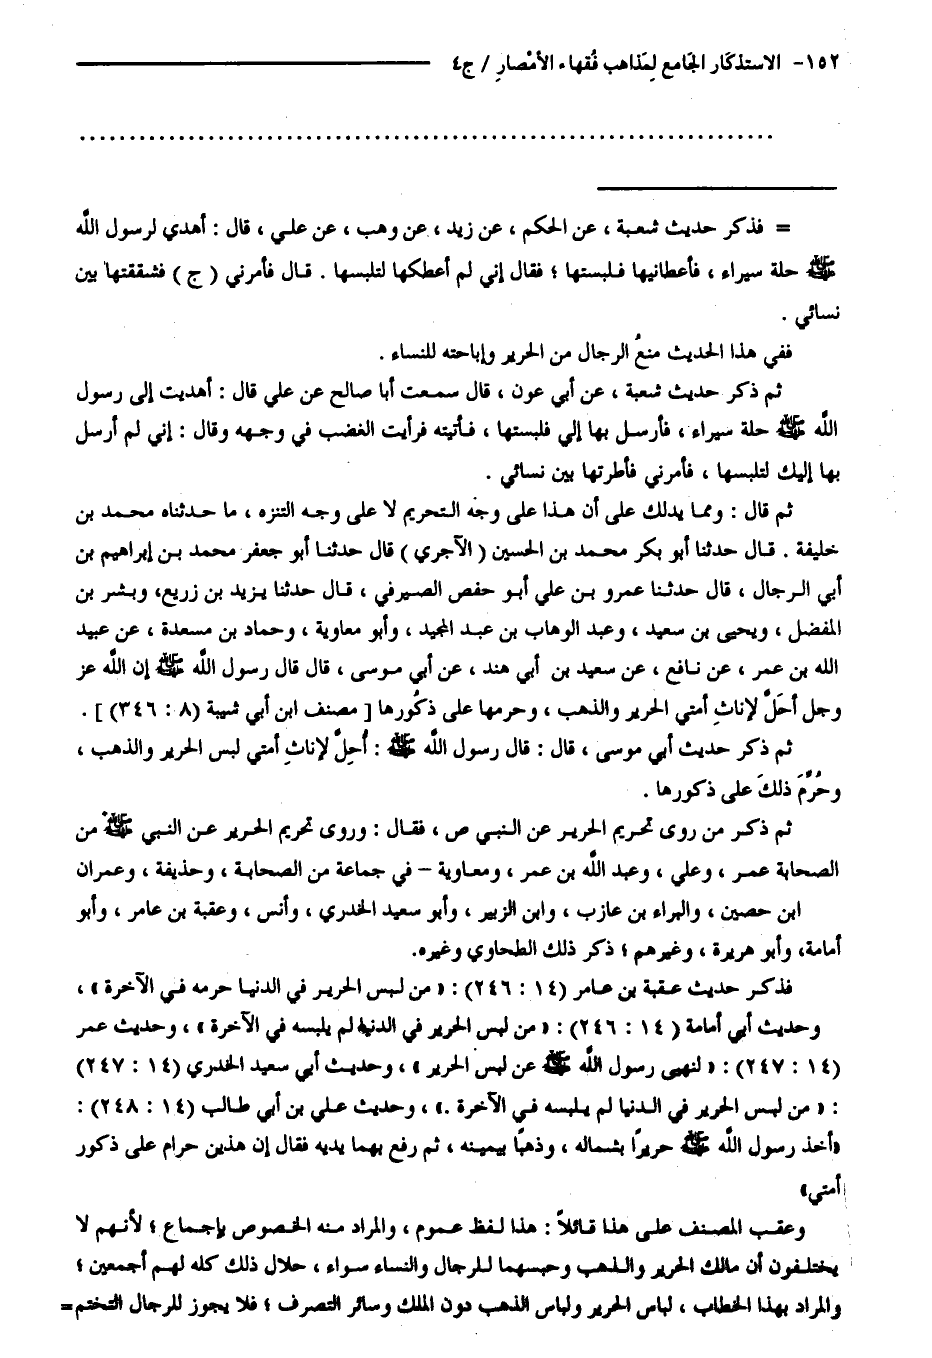 ١٥٢- الاستذكار الجَامع لِمَذاهب فُقهاء الأمْصارِ / ج٤
................................................................
= فذكر حديث شعبة ، عن الحكم ، عن زيد ، عن وهب ، عن علي ، قال : أهدي لرسول اللَّه
ﷺ حلة سيراء ، فأعطانيها فلبستها ؛ فقال إني لم أعطكها لتلبسها . قال فأمرني ( ج ) فشققتها بين
نسائي .
ففي هذا الحديث منعُ الرجال من الحرير وإباحته للنساء .
ثم ذكر حديث شعبة ، عن أبي عون ، قال سمعت أبا صالح عن علي قال : أهديت إلى رسول
اللَّه ﷺ حلة سيراء ، فأرسل بها إلي فلبستها ، فأتيته فرأيت الغضب في وجهه وقال : إني لم أرسل
بها إليك لتلبسها ، فأمرني فأطرتها بين نسائي .
ثم قال : ومما يدلك على أن هذا على وجه التحريم لا على وجه التنزه ، ما حدثناه محمد بن
خليفة . قال حدثنا أبو بكر محمد بن الحسين ( الآجري ) قال حدثنا أبو جعفر محمد بن إبراهيم بن
أبي الرجال ، قال حدثنا عمرو بن علي أبو حفص الصيرفي ، قال حدثنا يزيد بن زريع، وبشر بن
المفضل ، ويحيى بن سعيد ، وعبد الوهاب بن عبد المجيد ، وأبو معاوية ، وحماد بن مسعدة ، عن عبيد
الله بن عمر ، عن نافع ، عن سعيد بن أبي هند ، عن أبي موسى ، قال قال رسول اللَّه ﷺ إن اللَّه عز
وجل أحَلَّ لإناثِ أمتي الحرير والذهب ، وحرمها على ذكُورها [ مصنف ابن أبي شيبة (٨ : ٣٤٦) ] .
ثم ذكر حديث أبي موسى ، قال : قال رسول اللَّه ﷺ : أُحِلَّ لإناثِ أمتي لبس الحرير والذهب ،
وحُرِّمَ ذلكَ على ذكورها .
ثم ذكر من روى تحريم الحرير عن النبي ص ، فقال : وروى تحريم الحرير عن النبي ﷺ من
الصحابة عمر ، وعلي ، وعبد اللَّه بن عمر ، ومعاوية – في جماعة من الصحابة ، وحذيفة ، وعمران
ابن حصين ، والبراء بن عازب ، وابن الزبير ، وأبو سعيد الخدري ، وأنس ، وعقبة بن عامر ، وأبو
أمامة، وأبو هريرة ، وغيرهم ؛ ذكر ذلك الطحاوي وغيره.
فذكر حديث عقبة بن عامر (١٤ : ٢٤٦) : « من لبس الحرير في الدنيا حرمه في الآخرة » ،
وحديث أبي أمامة ( ١٤ : ٢٤٦) : « من لبس الحرير في الدنيا لم يلبسه في الآخرة » ، وحديث عمر
(١٤ : ٢٤٧) : « لنهى رسول اللَّه ﷺ عن لبس الحرير » ، وحديث أبي سعيد الخدري (١٤ : ٢٤٧)
: « من لبس الحرير في الدنيا لم يلبسه في الآخرة .» ، وحديث علي بن أبي طالب (١٤ : ٢٤٨) :
«أخذ رسول اللَّه ﷺ حريرًا بشماله ، وذهبًا بيمينه ، ثم رفع بهما يديه فقال إن هذين حرام على ذكور
أمتي»
وعقب المصنف على هذا قائلاً : هذا لفظ عموم ، والمراد منه الخصوص بإجماع ؛ لأنهم لا
يختلفون أن مالك الحرير والذهب وحبسهما للرجال والنساء سواء ، حلال ذلك كله لهم أجمعين ؛
والمراد بهذا الخطاب ، لباس الحرير ولباس الذهب دون الملك وسائر التصرف ؛ فلا يجوز للرجال التختم=